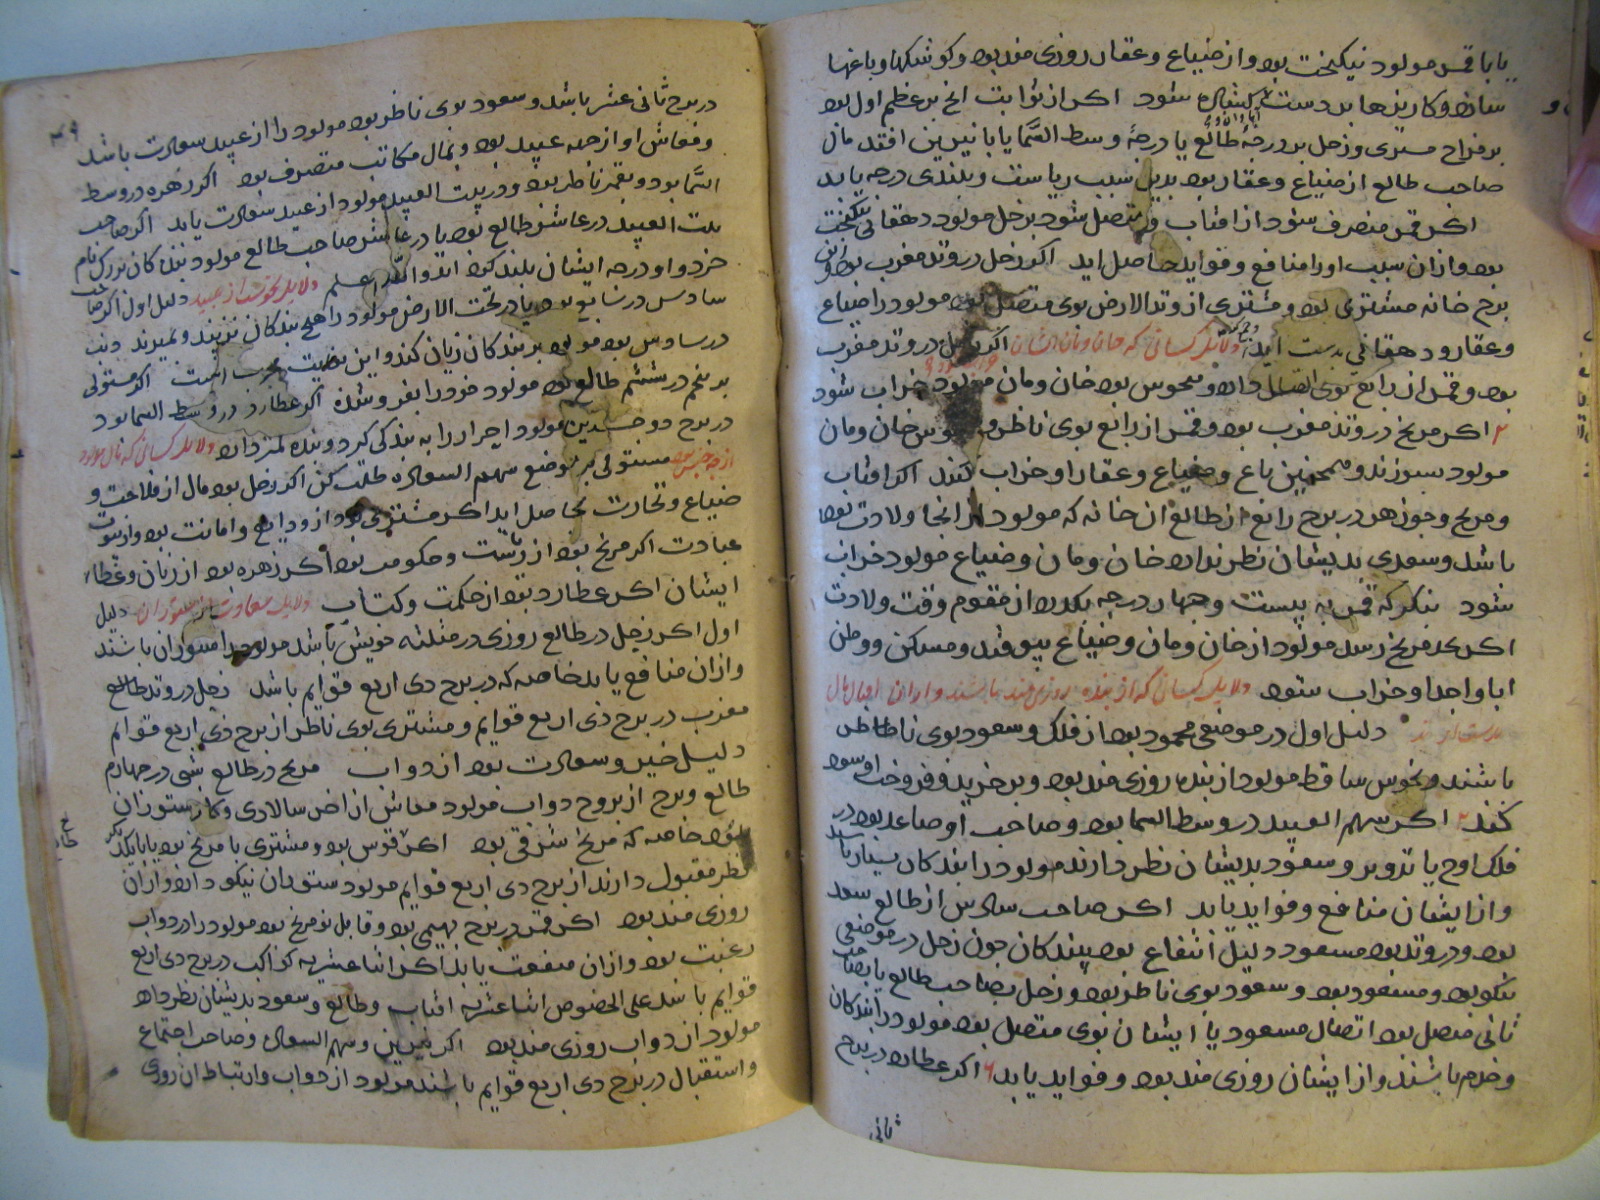 یا با قمر مولود نیکبخت بود و از ضیاع و عقار روزی مند بود و کوشکها و باغها
سازد و کاریزها بر دست کشاده شود اکر از ثوابت انچ بر عظم اول بود
بر مزاج مشتری و زحل بر درجهٔ طالع یا درجهٔ وسط السَّما یا با نیرین افتد مال
صاحب طالع از ضیاع و عقار بود بدین سبب ریاست و بلندی درجه یابد
اکر قمر منصرف شود از افتاب و متصل شود بزحل مولود دهقانی نیکبخت
بود و از ان سبب او را منافع و فواید حاصل اید اکر زحل در وتد مغرب بود و این
برج خانه مشتری بود و مشتری از وتد الارض بوی متصل بود مولود را ضیاع
و عقار و دهقانی بدست اید دلایل کسانی که خان و مان ایشان اکر زحل در وتد مغرب
بود و قمر از رابع بوی اتصال دارد و منحوس بود خان و مان مولود خراب شود
۲ اکر مریخ در وتد مغرب بود و قمر از رابع بوی ناظر و منحوس خان و مان
مولود بسوزند و همچنین باغ و ضیاع و عقار او خراب کنند اکر افتاب
و مریخ و جوزهر در برج رابع از طالع ان خانه که مولود را انجا ولادت بود
باشد و سعدی بدیشان نظر ندارد خان و مان و ضیاع مولود خراب
شود بنکر که قمر به بیست و چهار درجه بکدرد از مقوم وقت ولادت
اکر بمریخ رسد مولود از خان و مان و ضیاع بیوفتد و مسکن و وطن
ابا و اجداد خراب شود دلایل کسانی که از بنده روزی مند باشند و از ان اقبال مال
بدست ارند دلیل اول در موضعی محمود بود از فلک و سعود بوی ناظر
باشند و نحوس ساقط مولود از بنده روزی مند بود و بر خرید و فروخت او سود
کند ۲ اکر سهم العبید در وسط السما بود و صاحب او صاعد بود در
فلک اوج یا تدویر و سعود بدیشان نظر دارند مولود را بندکان بسیار باشد
و از ایشان منافع و فواید یابد اکر صاحب سادس از طالع سعد
بود و در وتد بود مسعود دلیل انتفاع بود ببندکان چون زحل در موضعی
نیکو بود و مسعود بود و سعود بوی ناظر بود و زحل بصاحب طالع یا بصاحب
ثانی متصل بود اتصال مسعود یا ایشان بوی متصل بود مولود را بندکان
و خدم باشند و از ایشان روزی مند بود و فواید یابد ۶ اکر عطارد در برج
ثانی
در برج ثانی عشر باشد و سعود بوی ناظر بود مولود را از عبید سعادت باشد
و معاش او از جهه عبید بود و بمال مکاتب متصرف بود اکر زهره در وسط
السَّما بود و بقمر ناظر بود و در بیت العبید مولود از عبید سعادت یابد اکر صاحب
بیت العبید در عاشر طالع بود یا در عاشر صاحب طالع مولود بندکان بزرک نام
خرد و او درجه ایشان بلند کرداند و الله اعلم دلایل نحوست از عبید دلیل اول اکر صاحب
سادس در سابع بود یا در تحت الارض مولود را هیچ بندکان نزیند و بمیرند ذنب
در سادس بود مولود بر بندکان زیان کند و این بغایت مجرب است اکر مستولی
بر پنجم در ششم طالع بود مولود خود را بفروشد اکر عطارد در وسط السما بود
در برج دو جسدین مولود احرار را به بندکی کرد و بنده لمزداد دلایل کسانی که مال مولود
از چه جنس بود مستولی بر موضع سهم السعاده طلب کن اکر زحل بود مال از فلاحت و
ضیاع و تجارت حاصل اید اکر مشتری بود از ودایع و امانت بود و از بیوت
عبادت اکر مریخ بود از ریاست و حکومت بود اکر زهره بود از زنان و عطاء
ایشان اکر عطارد بود از حکمت و کتاب دلایل سعادت از ستوران دلیل
اول اکر زحل در طالع روزی در مثلثه خویش باشد مولود را ستوران باشند
و از ان منافع یابد خاصه که در برج ذی اربع قوایم باشد زحل در وتد طالع
مغرب در برج ذی اربع قوایم و مشتری بوی ناظر از برج ذی اربع قوایم
دلیل خیر و سعادت بود از دواب مریخ در طالع شبی در چهارم
طالع و برج از بروج دواب مولود معاش از اخر سالاری و کار ستوران
بود خاصه که مریخ شرقی بود اکر قوس بود و مشتری با مریخ بود یا بیکدیکر
نظر مقبول دارند از برج ذی اربع قوایم مولود ستوران نیکو دارد و از ان
روزی مند بود اکر قمر در برج بهیمی بود و قابل نور مریخ بود مولود را در دواب
رغبت بود و از ان منفعت یابد اکر اثنا عشریه کواکب در برج ذی اربع
قوایم باشد علی الخصوص اثنا عشریه افتاب و طالع و سعود بدیشان نظر دارد
مولود از دواب روزی مند بود اکر نیرین و سهم السعاده و صاحب اجتماع
و استقبال در برج ذی اربع قوایم باشند مولود از دواب و ارتباط ان روزی